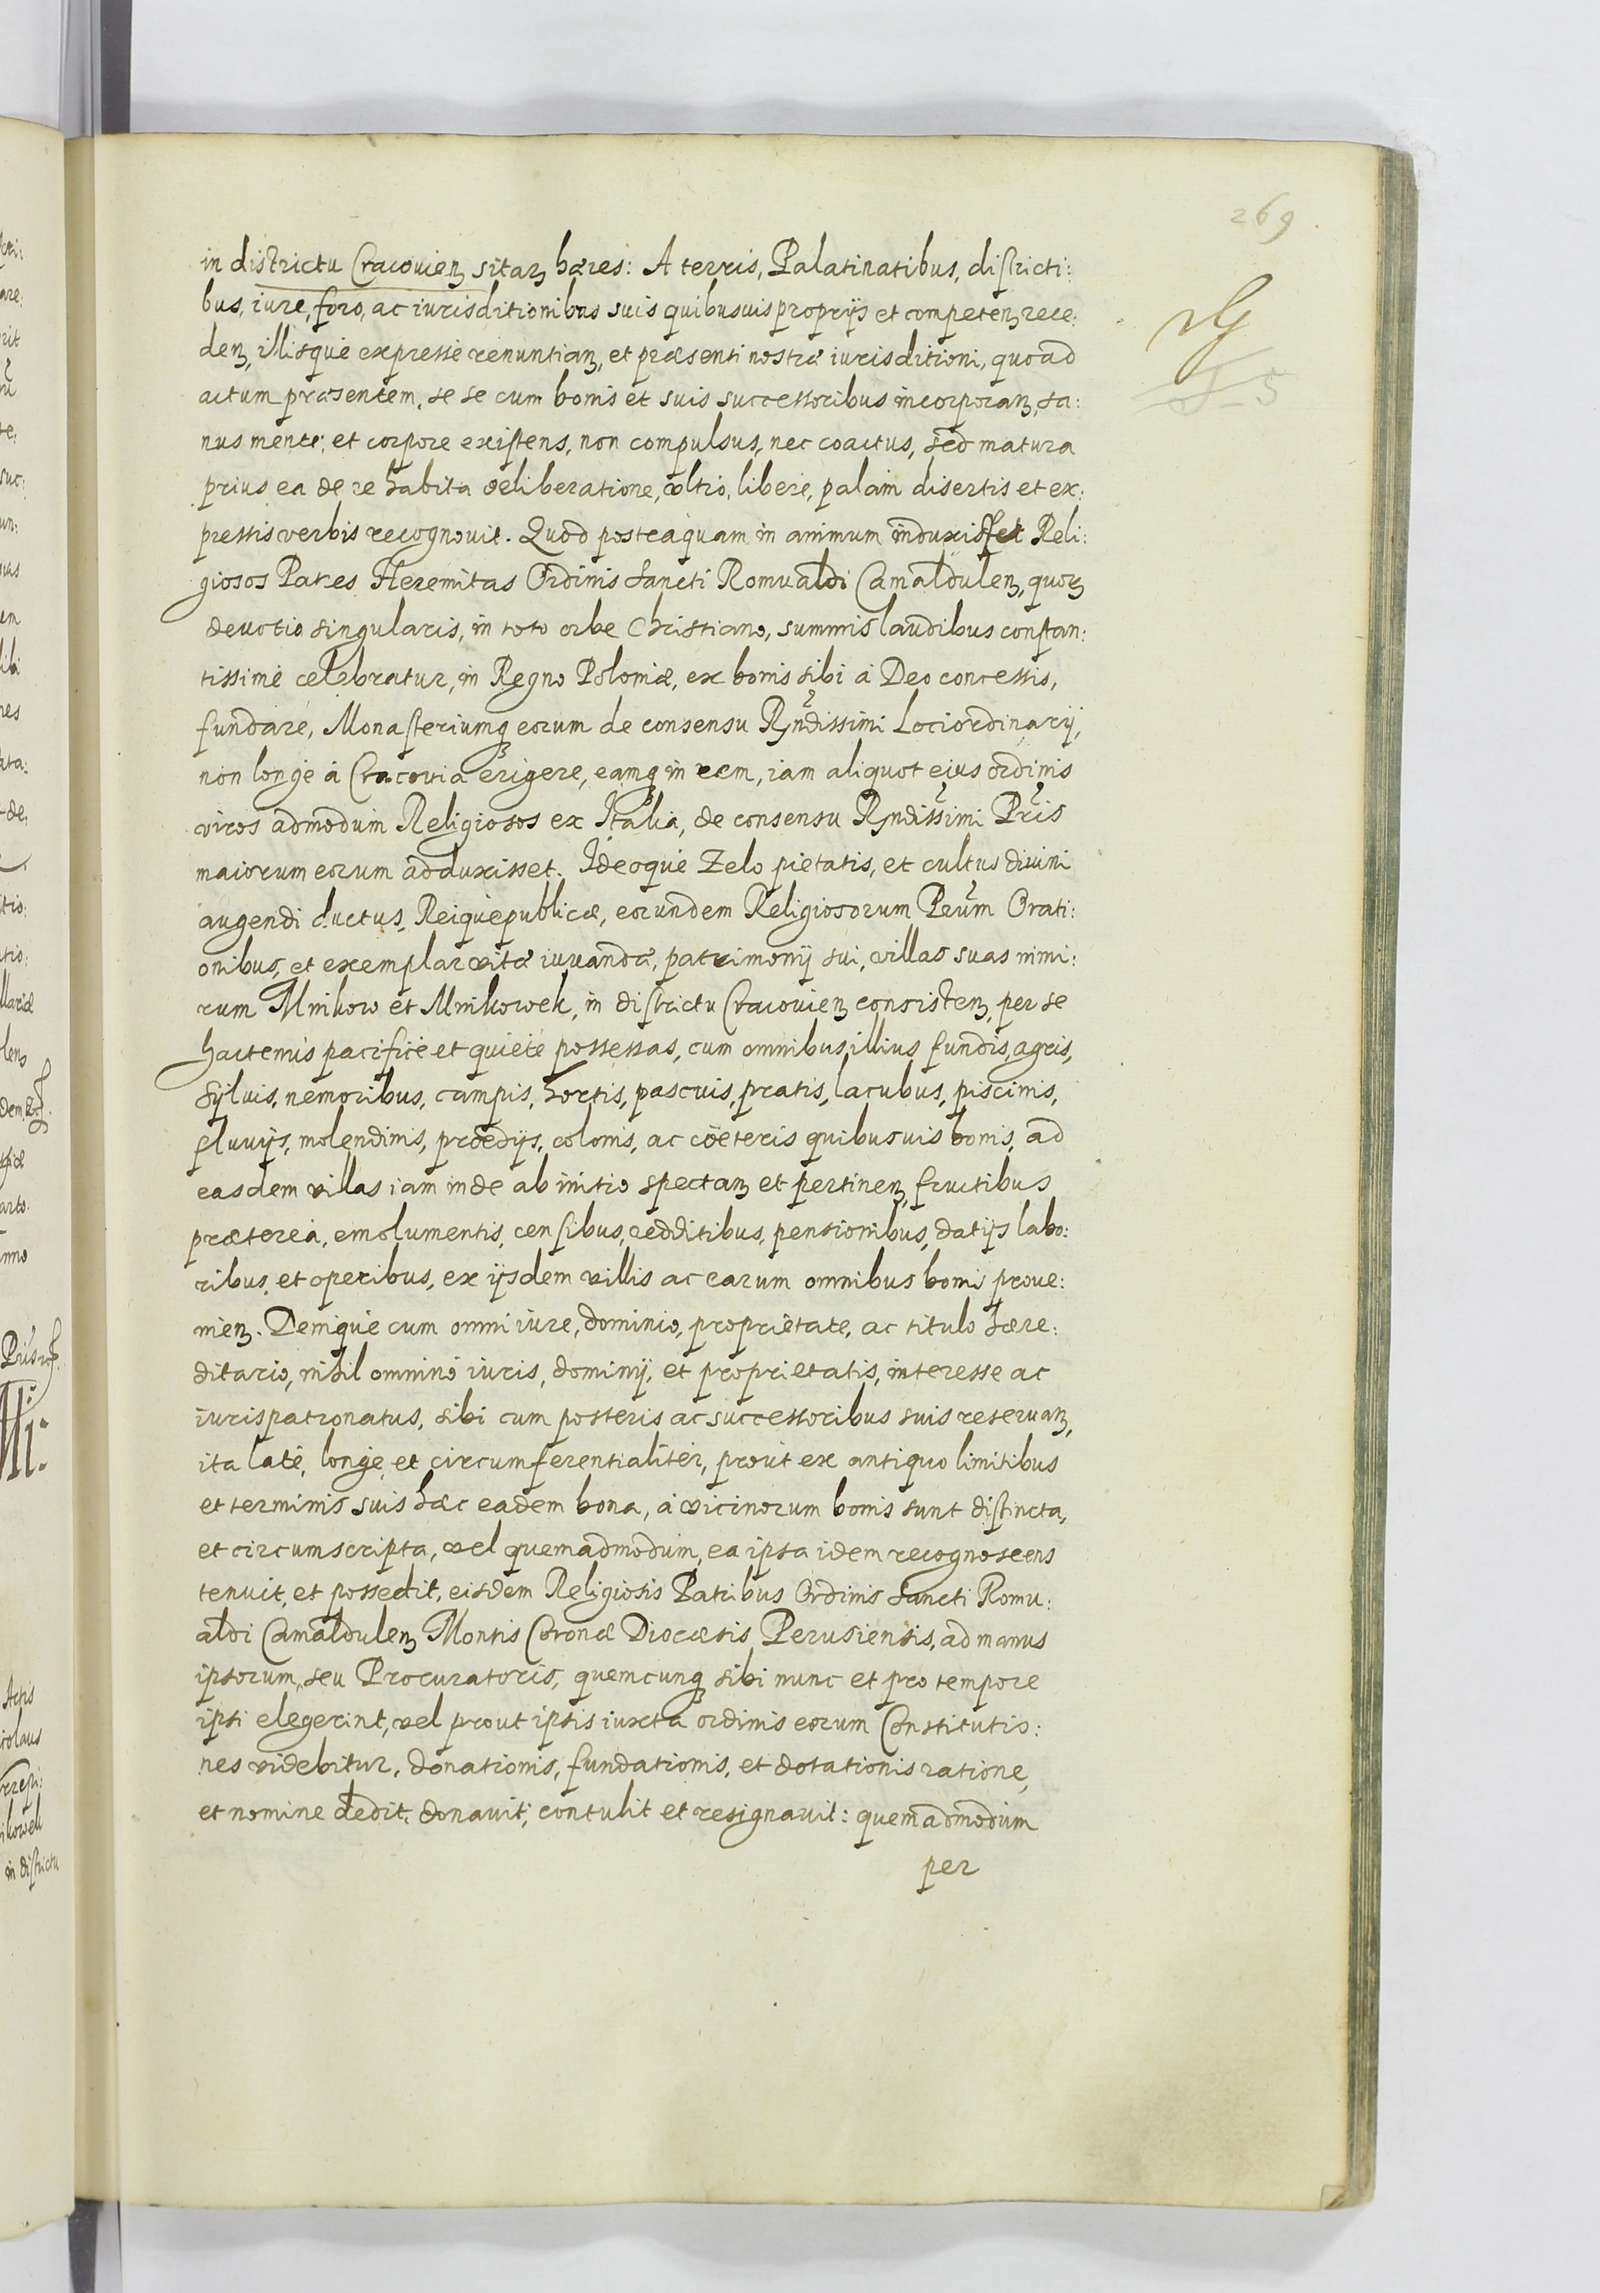 269
in districtu Cracovien̄ sitarꝫ hæres: A terris, Palatinatibus, districti:
bus, iure, foro, ac iurisditionibus suis quibusuis proprijs et competenꝫ rece:
denꝫ, illisque expressè renuntianꝫ, et præsenti nostræ iurisditioni, quoad
actum præsentem, se se cum bonis et suis successoribus incorporanꝫ, sa:
nus mente, et corpore existens, non compulsus, nec coactus, sed matura
prius ea de re habita deliberatione, vltrò, liberè, palàm disertis et ex:
pressis verbis recognouit. Quod posteaquam in animum induxisset Reli:
giosos Patres Heremitas Ordinis Sancti Romualdi Camaldulenꝫ, quorꝫ
deuotio singularis, in toto orbe Christiano, summis laudibus constan:
tissimè celebratur, in Regno Poloniæ, ex bonis sibi à Deo concessis,
fundare, Monasteriumqꝫ eorum de consensu Rꝫndissimi Lociordinarij,
non longè à Cracovia erigere, eamqꝫ in rem, iam aliquot eius ordinis
viros admodum Religiosos ex Italia, de consensu Rꝫndissimi Pris
maiorum eorum adduxisset. Ideoque Zelo pietatis, et cultus diuini
augendi ductus, Reiquepublicæ, eorundem Religiosorum Prum Orati:
onibus, et exemplari vitæ iuuandæ, patrimonij sui, villas suas nimi:
rum Mnikow et Mnikowek, in districtu Cracouienꝫ consistenꝫ, per se
hactenùs pacificè et quietè possessas, cum omnibus illius fundis, agris,
syluis, nemoribus, campis, hortis, pascuis, pratis, lacubus, piscinis,
fluvijs, molendinis, prædijs, colonis, ac cæteris quibusuis bonis, ad
easdem villas iam inde ab initio spectanꝫ et pertinenꝫ, fructibus
prætereà, emolumentis, censibus, redditibus, pensionibus, datijs labo:
ribus, et operibus, ex ijsdem villis ac earum omnibus bonis proue:
nienꝫ. Denique cum omni iure, dominio, proprietate, ac titulo hære:
ditario, nihil omninò iuris, dominij, et proprietatis, interesse ac
iurispatronatus, sibi cum posteris ac successoribus suis reseruanꝫ,
ita latè, longè, et circumferentialitèr, prout ex antiquo limitibus
et terminis suis hæc eadem bona, à vicinorum bonis sunt distincta,
et circumscripta, vel quemadmodum, ea ipsa idem recognoscens
tenuit, et possedit, eisdem Religiosis Patribus Ordinis Sancti Romu:
aldi Camaldulenꝫ Montis Coronæ Diocæsis Perusiensis, ad manus
ipsorum, seu Procuratoris, quemcunqꝫ sibi nunc et pro tempore
ipsi elegerint, vel prout ipsis iuxta ordinis eorum Constitutio:
nes videbitur, donationis, fundationis, et dotationis ratione,
et nomine dedit, donavit, contulit et resignavit: quemadmodum
per